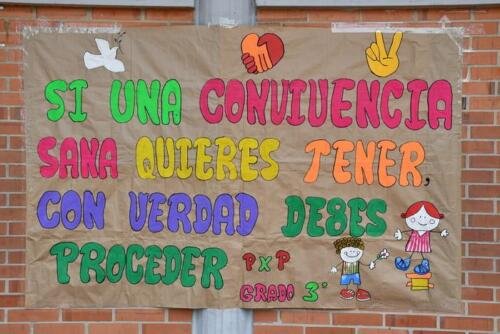 SI UNA CONVIVENCIA
SANA QUIERES TENER,
CON VERDAD DEBES
PROCEDER
P x P
GRADO 3°